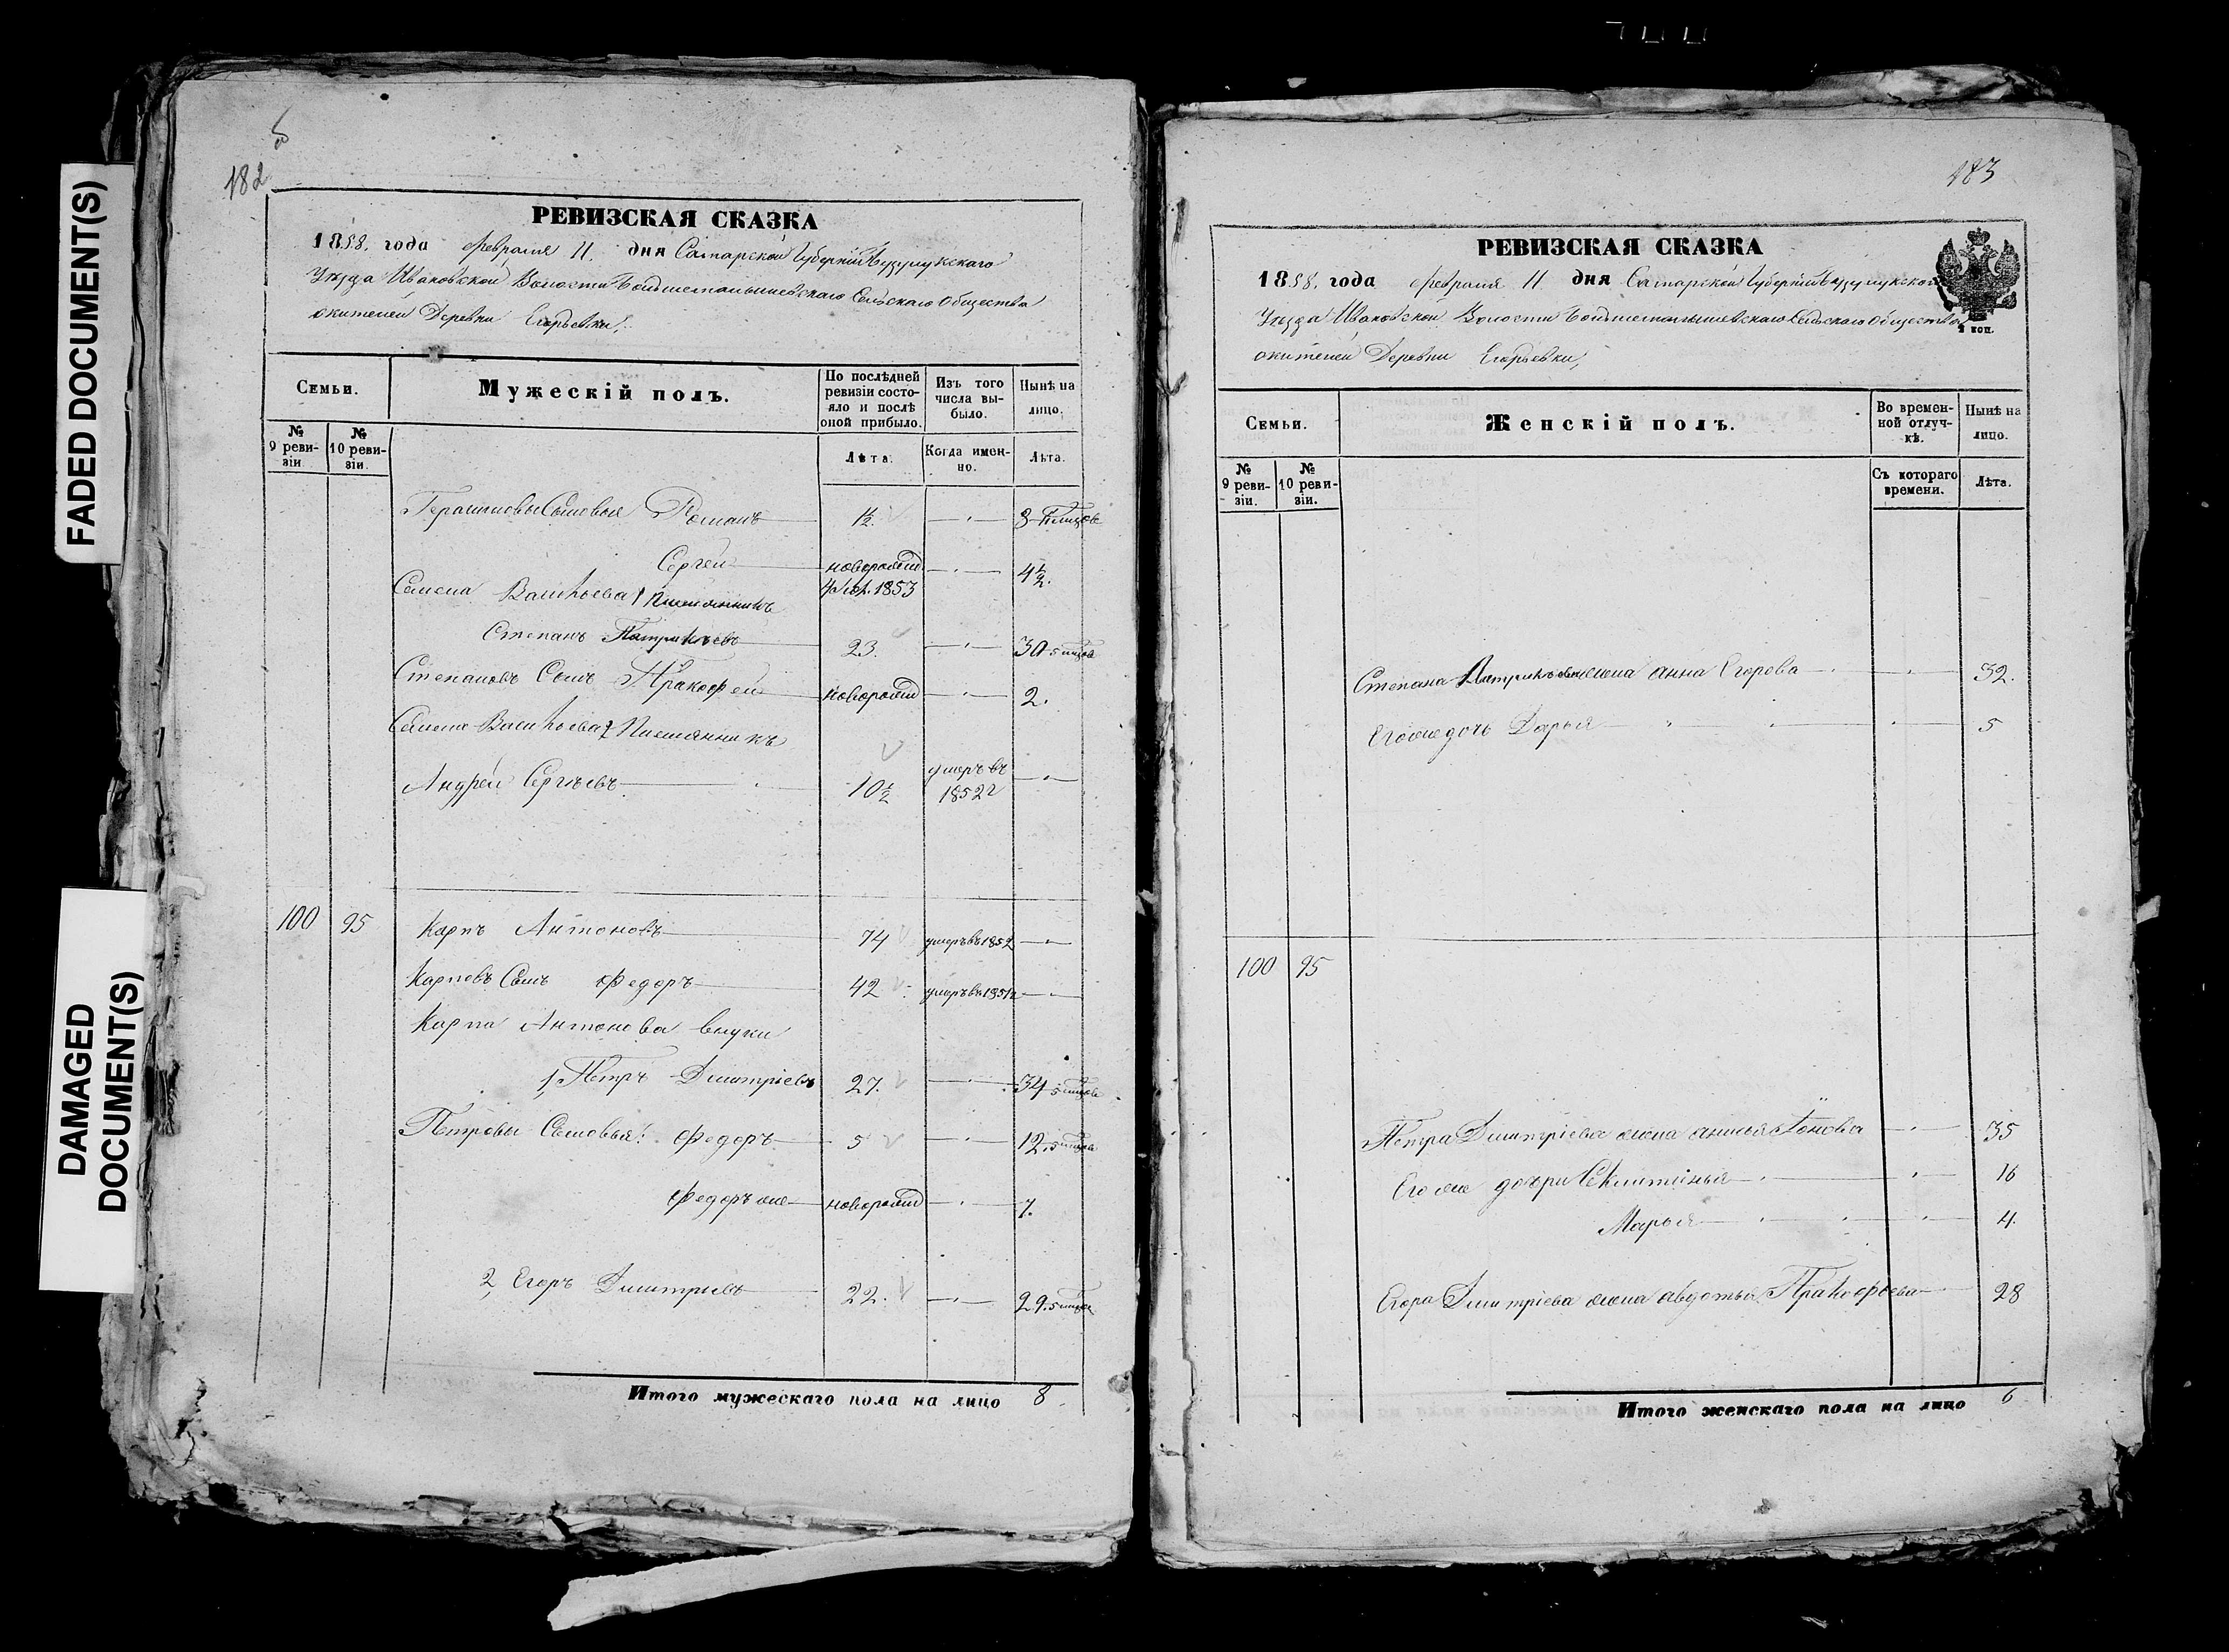 FADED DOCUMENT(S)
DAMAGED DOCUMENT(S)
182
РЕВИЗСКАЯ СКАЗКА
1858. года февраля 11. дня Самарской Губернiи Бузулукскаго
Уѣзда Ивановской Волости Сельскаго Общества
жителей Деревни Егорьевки,
Семьи.
Мужескiй полъ.
По послѣдней ревизiи состояло и послѣ оной прибыло.
Изъ того числа выбыло.
Нынѣ на лицо.
№ 9 ревизiи.
№ 10 ревизiи.
Лѣта.
Когда именно.
Лѣта.
Герасимовы Сыновья Романъ 1½.
Сергей новорожд 4½.
1853
Семена Васильева 1 Племянникъ
Степанъ Патрикѣевъ 23. 30
Степановъ Сынъ Пракофей новорожд 2.
Семена Васильева 2 Племянникъ
Андрей Сергѣевъ 10½ умеръ въ 1852 г
100 95 Карпъ Антоновъ 74 умеръ въ 1852
Карповъ Сынъ Федоръ 42 умеръ въ
Карпа Антонова внуки
1, Петръ Дмитрiевъ 27. 34
Петровы Сыновья: Федоръ 5 12.
Федоръ же новорожд 7.
2, Егоръ Дмитрiевъ 22. 29.
Итого мужескаго пола на лицо 8.
183
РЕВИЗСКАЯ СКАЗКА
1858. года февраля 11 дня Самарской Губернiи Бузулукскаго
Уѣзда Ивановской Волости Сельскаго Общества
жителей Деревни Егорьевки,
коп.
Семьи.
Женскiй полъ.
Во временной отлучкѣ.
Нынѣ на лицо.
№ 9 ревизiи.
№ 10 ревизiи.
Съ котораго времени.
Лѣта.
Степана Патрикѣева жена Анна Егорова 32.
Его же дочь Дарья 5
100 95
Петра Дмитрiева жена 35
Его же дочри 16
Марья 4.
Егора Дмитрiева жена Авдотья Пракофьева 28
Итого женскаго пола на лицо 6